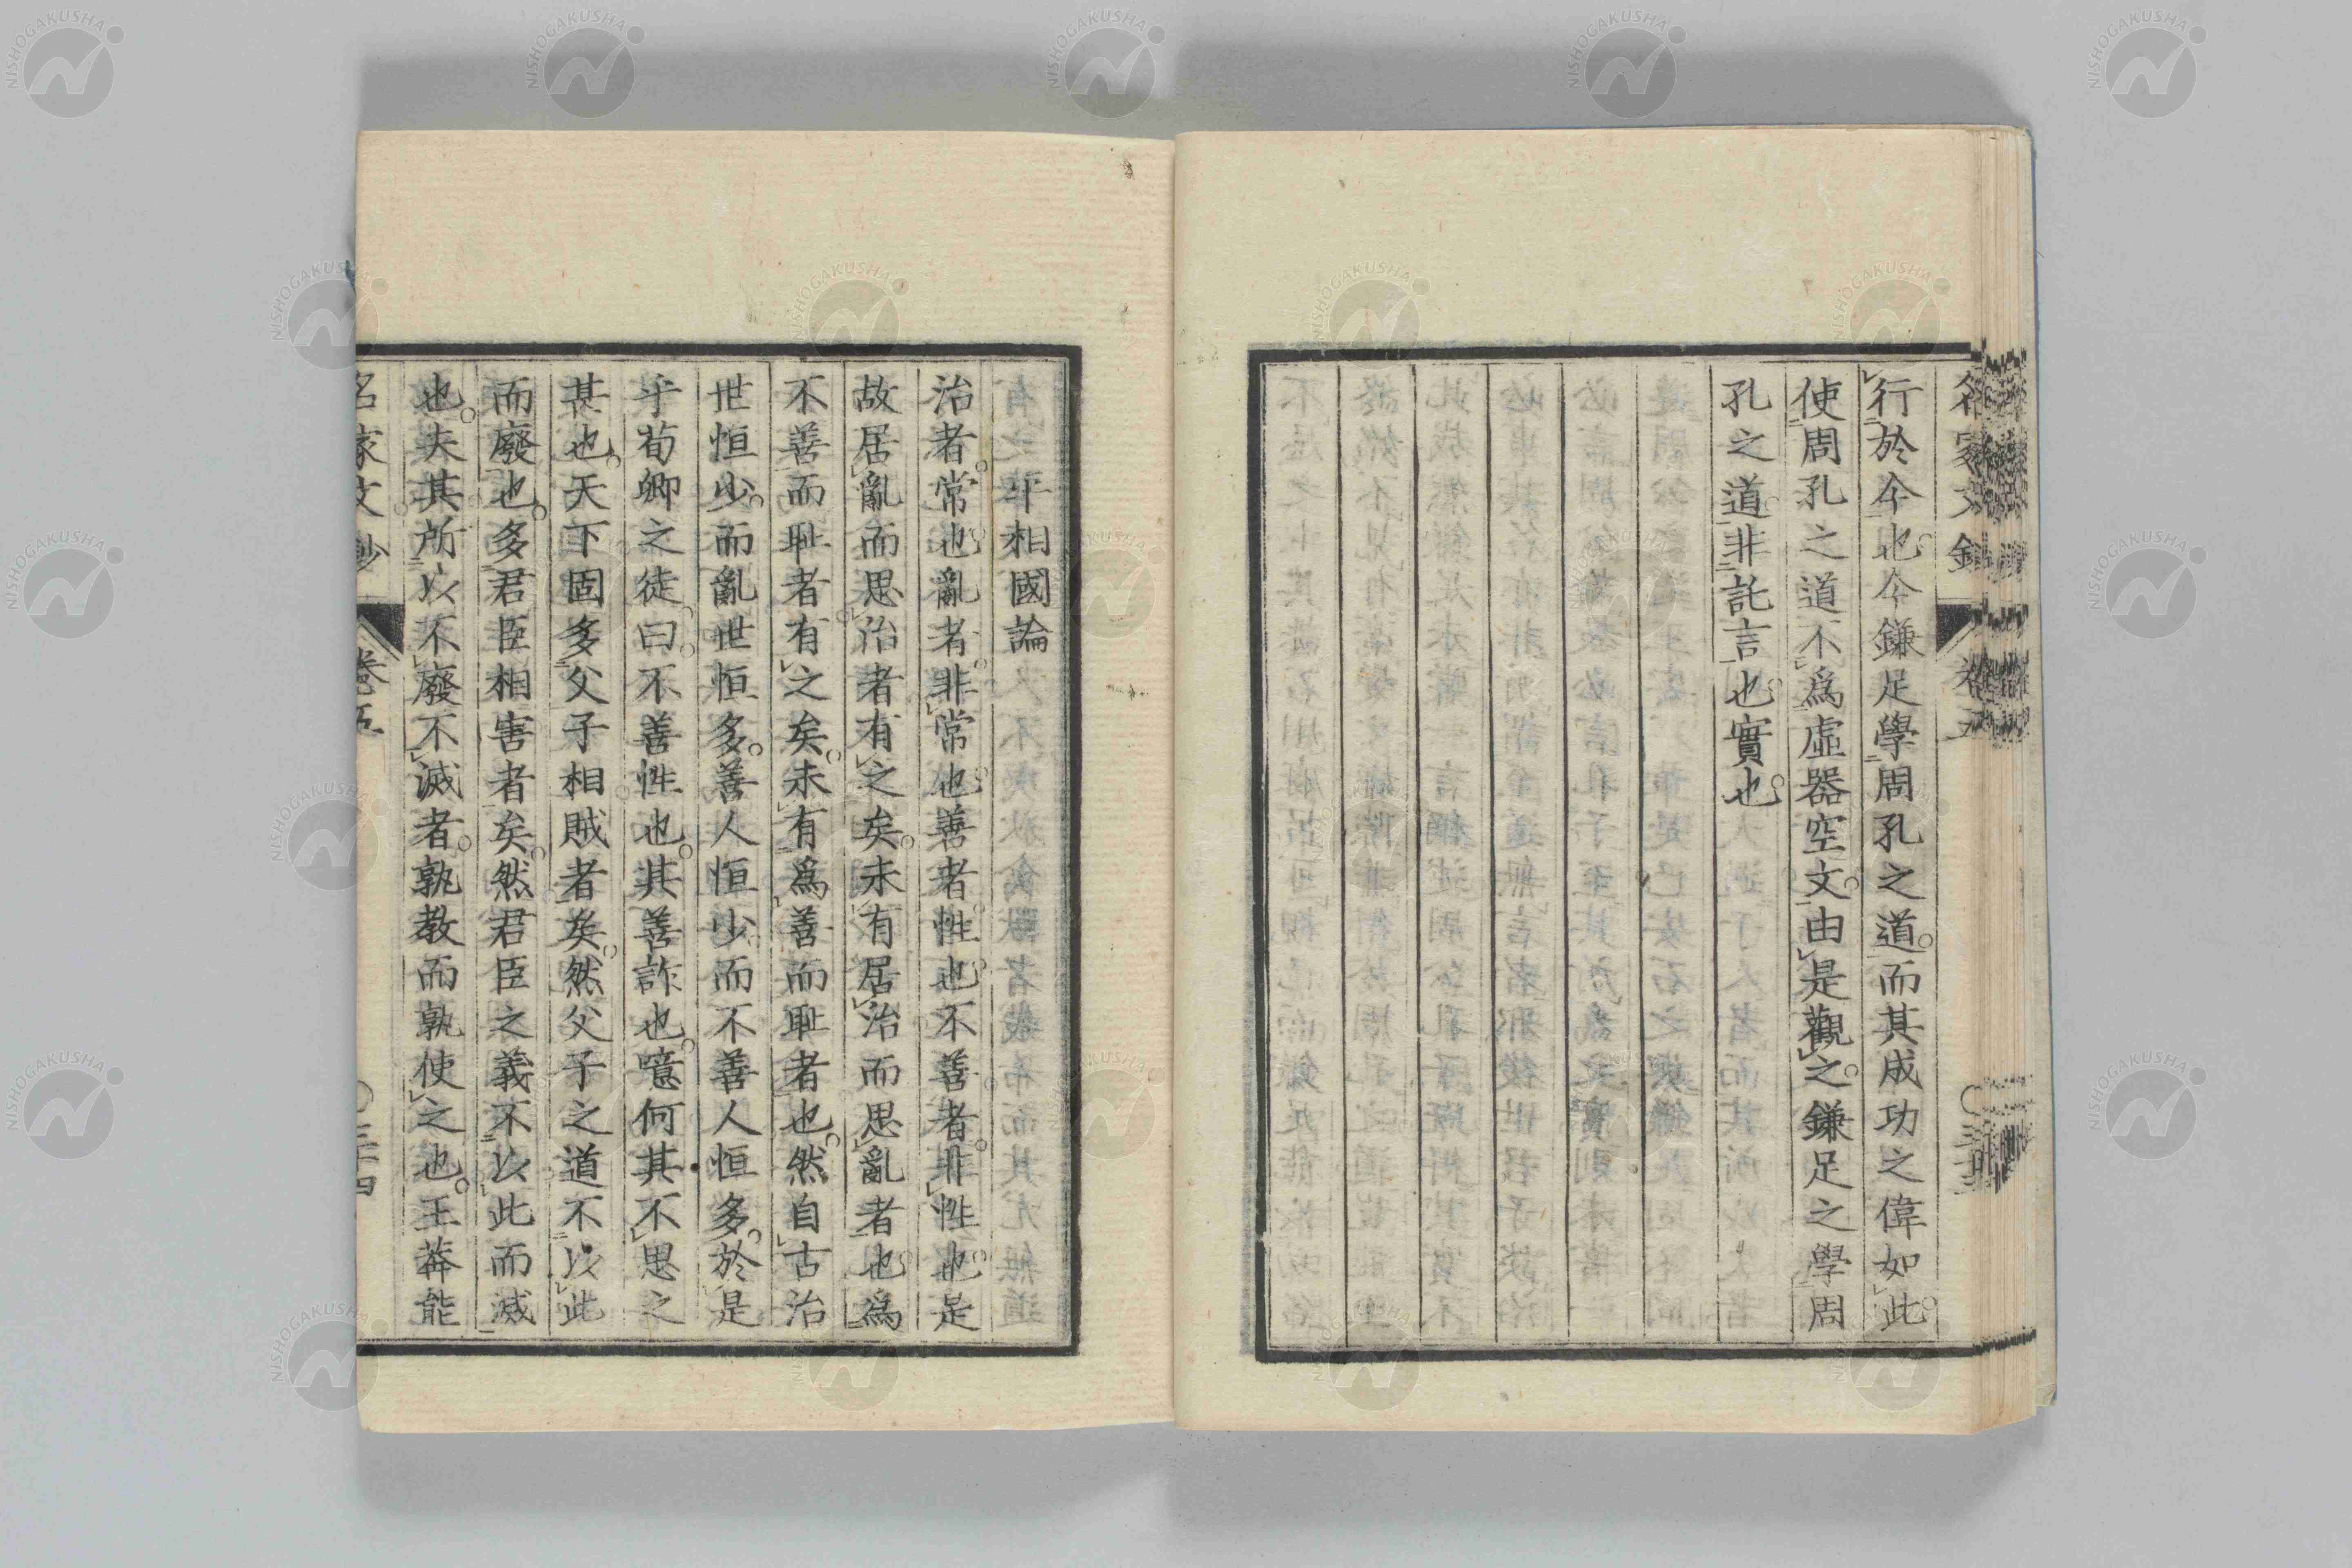 行於今也今鎌足學周孔之道而其成功之偉如此
使周孔之道不爲虛器空文由是觀之鎌足之學周
孔之道非託言也實也
平相國論
治者常也亂者非常也善者性也不善者非性也是
故居亂而思治者有之矣未有居治而思亂者也爲
不善而恥者有之矣未有爲善而恥者也然自古治
世恒少而亂世恒多善人恒少而不善人恒多於是
乎荀卿之徒曰不善性也其善詐也噫何其不思之
甚也天下固多父子相賊者矣然父子之道不以此
而廢也多君臣相害者矣然君臣之義不以此而滅
也夫其所以不廢不滅者孰教而孰使之也王莽能
名家文鈔 卷五 三十四
NISHOGAKUSHA